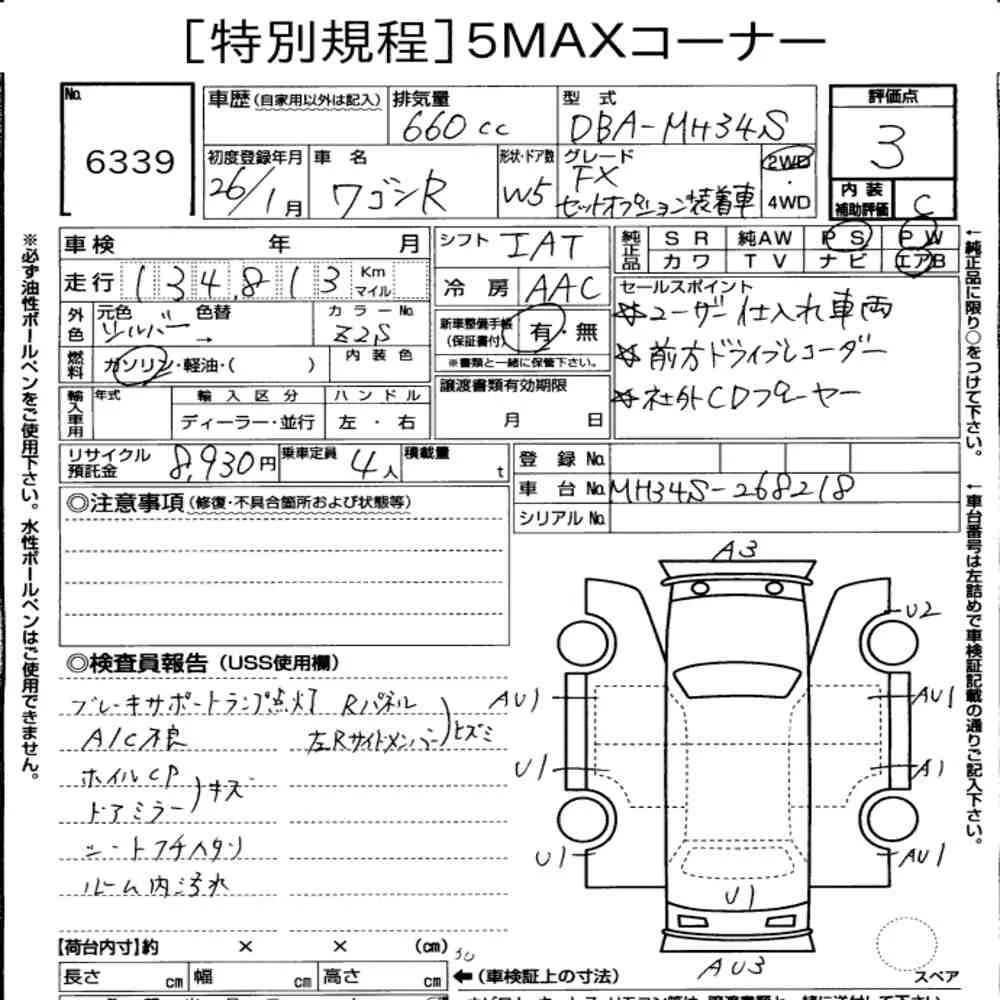 [特別規程]5MAXコーナー
No. 6339
車歴(自家用以外は記入)
排気量 660cc
型式 DBA-MH34S
評価点 3
初度登録年月 26/1月
車名 ワゴンR
形状・ドア数 W5
グレード FX セットオプション装着車
2WD・4WD
内装補助評価 C
車検 年 月
シフト IAT
純正品 SR 純AW PS PW
カワ TV ナビ エアB
走行 134,813 Km マイル
冷房 AAC
外色 元色 シルバー → 色替
カラーNo. Z2S
新車整備手帳(保証書付) 有・無
※書類と一緒に保管下さい。
燃料 ガソリン・軽油・( )
内装色
セールスポイント
☆ユーザー仕入れ車両
☆前方ドライブレコーダー
☆社外CDプレーヤー
輸入車用 年式 輸入区分 ハンドル
ディーラー・並行 左・右
譲渡書類有効期限
月 日
リサイクル預託金 8,930円
乗車定員 4人
積載量 t
登録No.
車台No. MH34S-268218
シリアルNo.
◎注意事項(修復・不具合箇所および状態等)
◎検査員報告(USS使用欄)
ブレーキサポートランプ点灯
A/C不良
ホイルCP
ドアミラー)キズ
シートフチヘタリ
ルーム内汚れ
Rパネル
左Rサイドメンバー)ヒズミ
A3
U2
AU1
AU1
U1
A1
U1
AU1
U1
AU3
スペア
【荷台内寸】約 × × (cm)
長さ cm 幅 cm 高さ cm
←(車検証上の寸法)
※必ず油性ボールペンをご使用下さい。水性ボールペンはご使用できません。
←純正品に限り○をつけて下さい。
←車台番号は左詰めで車検証記載の通りご記入下さい。